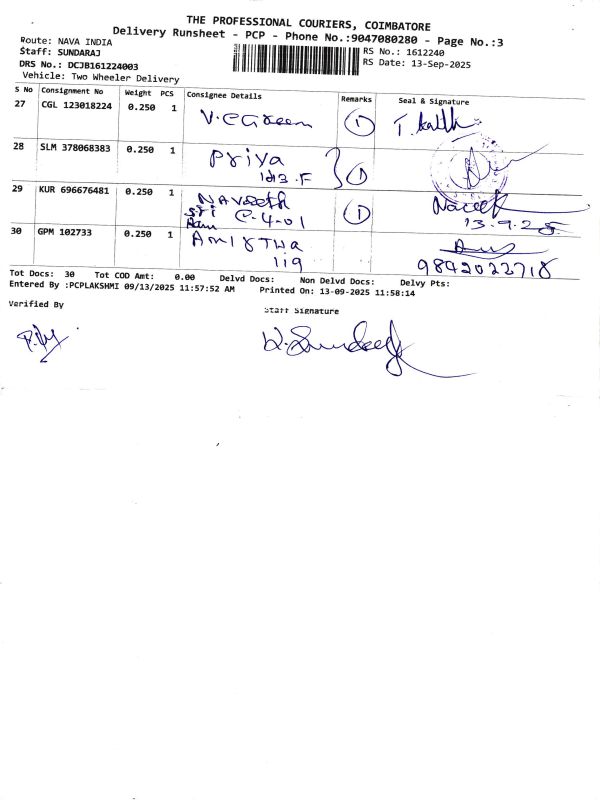 THE PROFESSIONAL COURIERS, COIMBATORE
Delivery Runsheet - PCP - Phone No.:9047080280 - Page No.:3
Route: NAVA INDIA
Staff: SUNDARAJ
RS No.: 1612240
DRS No.: DCJB161224003
RS Date: 13-Sep-2025
Vehicle: Two Wheeler Delivery
S No Consignment No Weight PCS Consignee Details Remarks Seal & Signature
27 CGL 123018224 0.250 1 V. e Green 1
28 SLM 378068383 0.250 1 Priya 1
29 KUR 696676481 0.250 1 NAVneeth 1
Sri C-4-01
13.9.25
30 GPM 102733 0.250 1
119
9842022718
Tot Docs: 30 Tot COD Amt: 0.00 Delvd Docs: Non Delvd Docs: Delvy Pts:
Entered By :PCPLAKSHMI 09/13/2025 11:57:52 AM Printed On: 13-09-2025 11:58:14
Verified By
Staff Signature